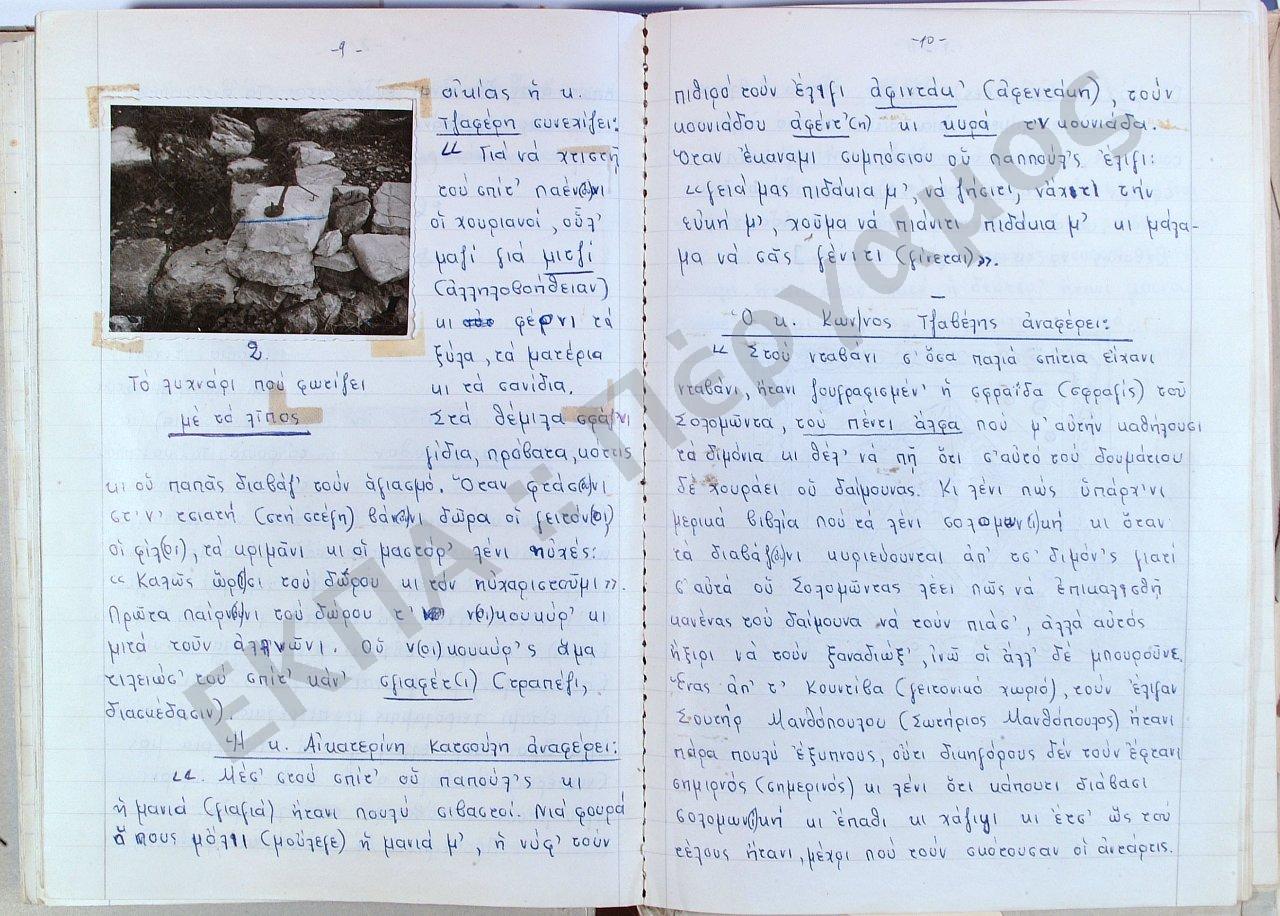 -9-
οἰκίας ἡ κ.
Τζαφέρη συνεχίζει:
"Γιά νά χτιστῆ
τού σπίτ' παέν(ου)νι
οἱ χουριανοί, οὗλ'
μαζί γιά μιτζί
(ἀλληλοβοήθειαν)
κι φέρνι τά
ξύλα, τά ματέρια
κι τά σανίδια.
Στά θέμιλα σφάζνι
2.
Τό λυχνάρι πού φωτίζει
μέ τό λῖπος
γίδια, πρόβατα, κότις
κι οὑ παπᾶς διαβάζ' τοὐν ἁγιασμό. Ὅταν φτάσ(ου)νι
στ'ν' τσιατή (στή στέγη) βάν(ου)νι δῶρα οἱ γειτόν(οι),
οἱ φίλ(οι), τά κριμᾶνι κι οἱ μαστόρ' λένι πὐχές:
"Καλῶς ὥρ(ι)σι τοὐ δῶρου κι τόν πὐχαριστοῦμι».
Πρῶτα παίρν(ου)νι τοὐ δώρου τ' ν(οι)κουκύρ' κι
μιτά τοὐν ἀλλνῶνι. Οὑ ν(οι)κουκύρ'ς ἅμα
τιλειώσ' τοὐ σπίτ' κάν' σζιαφέτ(ι) (τραπέζι,
διασκέδασιν).
Ἡ κ. Αἰκατερίνη Κατσούλη ἀναφέρει:
"Μέσ' στού σπίτ' οὑ παπούλ'ς κι
ἡ μανιά (γιαγιά) ἤτανι πουλύ σιβαστοί. Νιά φουρά
ὅπους μὄλιι (μοὔλεγε) ἡ μανιά μ', ἡ νύφ' τοὐν
-10-
πιθιρό τοὐν ἔλιγι ἀφιντάκ' (ἀφεντάκη), τοὐν
κουνιάδου ἀφέντ'(η) κι κυρά τ'ν κουνιάδα.
Ὅταν ἐκάναμι συμπόσιου οὑ παππούλ'ς ἔλιγι:
«γειά μας πιδάκια μ', νά ζῆστι, νἄχιτι τήν
εὐκή μ', χοῦμα νά πιάνιτι πιδάκια μ' κι μάλα-
μα νά σᾶς γένιτι (γίνεται)».
Ὁ κ. Κων/νος Τζαβέλης ἀναφέρει:
"Στού νταβάνι σ' ὅσα παλιά σπίτια εἴχανι
νταβάνι, ἤτανι ζουγραφισμέν' ἡ σφραΐδα (σφραγίς) τοῦ
Σολομῶντα, τοὐ πέντι ἄλφα πού μ' αὐτήν καθήλουσι
τά διμόνια κι θέλ' νά πῆ ὅτι σ' αὐτό τοὐ δουμάτιου
δέ χουράει οὑ δαίμουνας. Κι λένι πώς ὑπάρχ'νι
μερικά βιβλία πού τά λένι σολομων(ι)κή κι ὅταν
τά διαβάζ(ου)νι κυριεύουνται ἀπ' τσ' διμόν'ς γιατί
σ' αὐτά οὑ Σολομῶντας λέει πῶς νά ἐπικαλεσθῆ
κανένας τοὐ δαίμουνα νά τοὐν πιάσ', ἀλλά αὐτός
ἤξιρι νά τοὐν ξαναδιώξ', ἰνῶ οἱ ἄλλ' δέ μπουροῦνε.
Ἕνας ἀπ' τ' Κουντίβα (γειτονικό χωριό), τοὐν ἔλιγαν
Σουτήρ Μανθόπουλου (Σωτήριος Μανθόπουλος) ἤτανι
πάρα πουλύ ἔξυπνους, οὔτι διηγόρους δέν τοὐν ἔφτανι
σημιρνός (σημερινός) κι λένι ὅτι κάπουτι διάβασι
σολομων(ι)κή κι ἔπαθι κι χάζιψι κι ἔτσ' ὥς τοὐ
τέλους ἤτανι, μέχρι πού τοὐν σκότουσαν οἱ ἀντάρτις.
ΕΚΠΑ : Πέργαμος